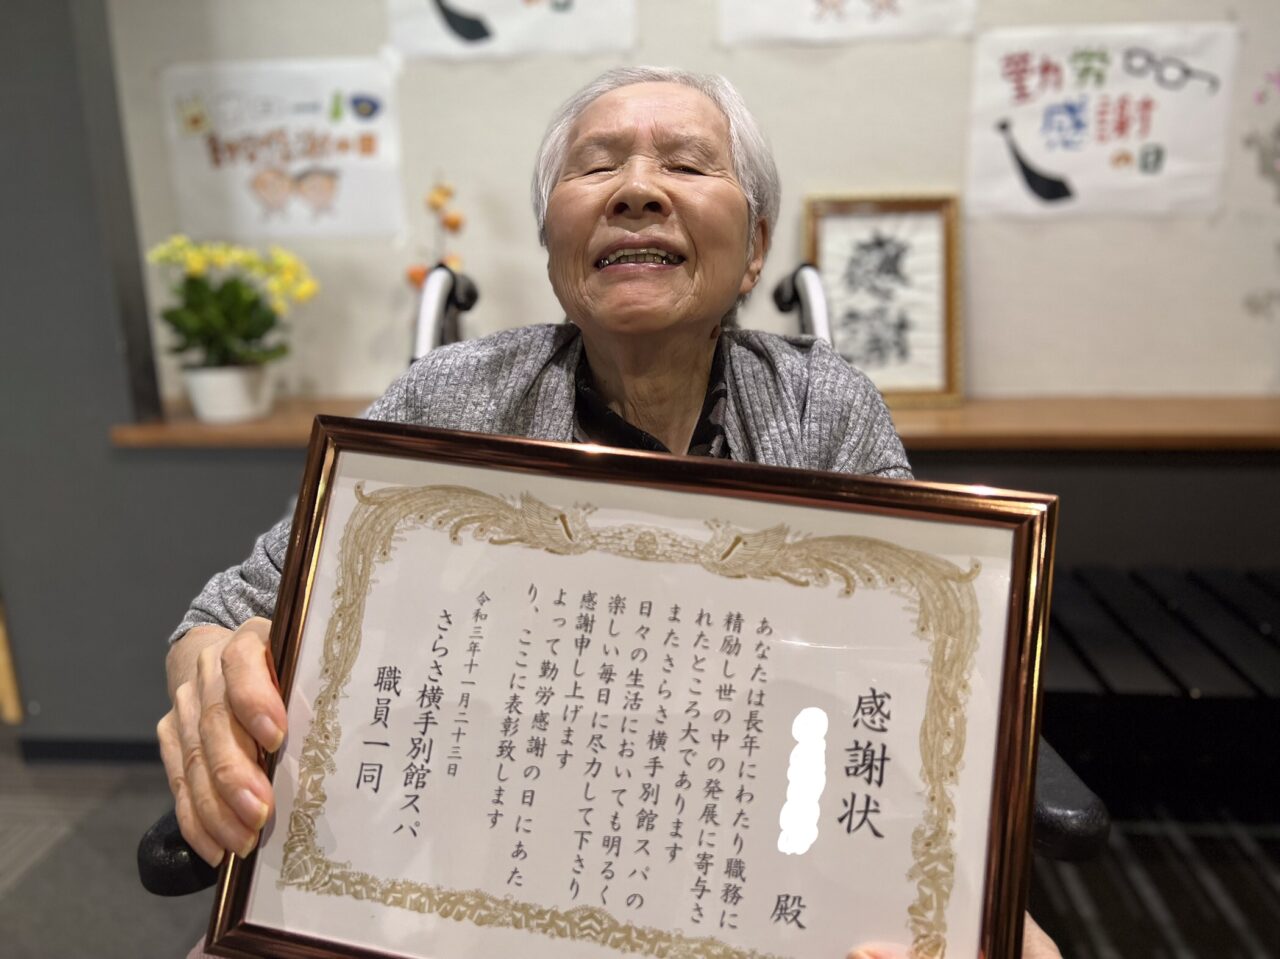 勤労
感謝
の日
感謝
感謝状
殿
あなたは長年にわたり職務に
精励し世の中の発展に寄与さ
れたところ大であります
またさらさ横手別館スパの
日々の生活においても明るく
楽しい毎日に尽力して下さり
感謝申し上げます
よって勤労感謝の日にあた
り、ここに表彰致します
令和三年十一月二十三日
さらさ横手別館スパ
職員一同